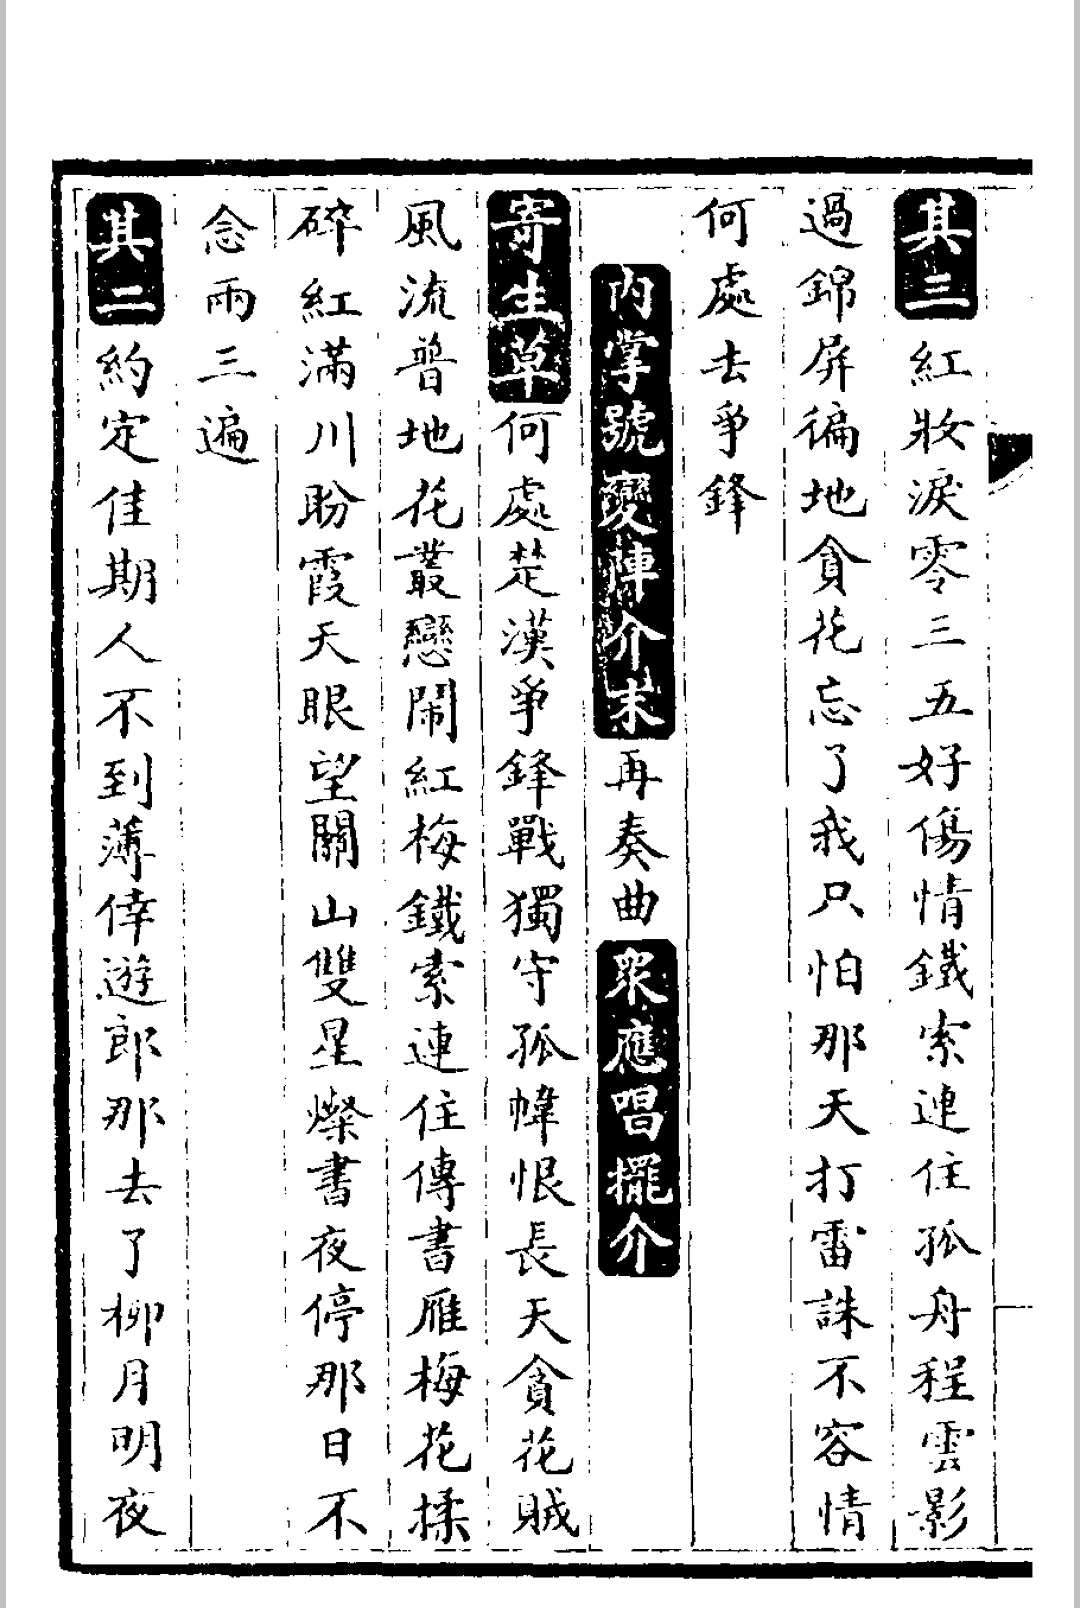 其三紅妝淚零三五好傷情鐵索連住孤舟程雲影
過錦屏徧地貪花忘了我只怕那天打雷誅不容情
何處去爭鋒
內掌號變陣介末再奏曲眾應唱擺介
寄生草何處楚漢爭鋒戰獨守孤幃恨長天貪花賊
風流普地花叢戀鬧紅梅鐵索連住傳書雁梅花揉
碎紅滿川盼霞天眼望關山雙星燦書夜停那日不
念兩三遍
其二約定佳期人不到薄倖遊郎那去了柳月明夜